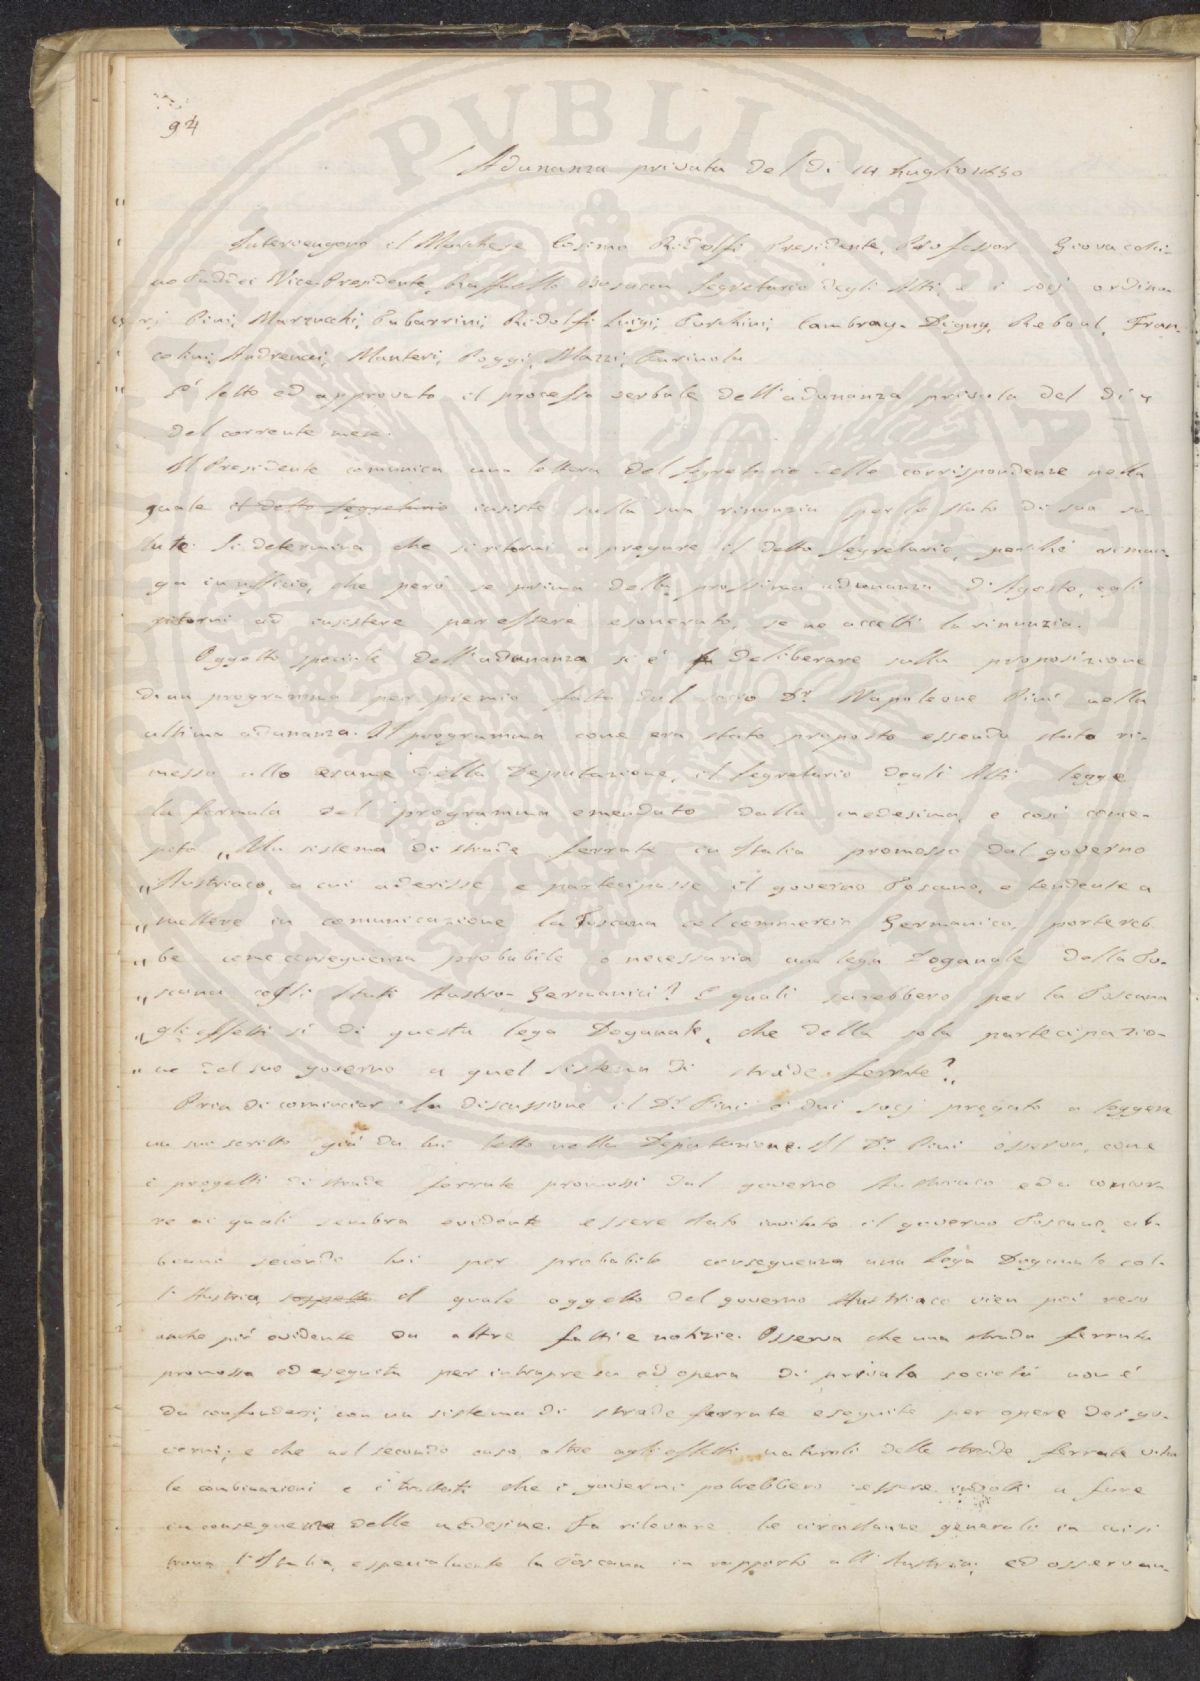 94
Adunanza privata del dì 14 Luglio 1850
Intervengono il Marchese Cosimo Ridolfi Presidente, Professor Giovacchi-
no Taddei Vice Presidente, Raffaello Busacca Segretario degli Atti, e i socj ordina-
rj Pini, Marzucchi, Tabarrini, Ridolfi Luigi, Puschini, Cambray-Digny, Reboul, Fran-
colini, Andreucci, Manteri, Poggi, Mazzi, Farinola
E' letto ed approvato il processo verbale dell'adunanza privata del dì 4
del corrente mese.
Il Presidente comunica una lettera del Segretario delle corrispondenze nella
quale il detto Segretario insiste sulla sua rinunzia per lo stato di sua sa-
lute. Si determina che si ritorni a pregare il detto Segretario, perchè riman-
ga in uffizio, che però se prima della prossima adunanza d'Agosto, egli
ritorni ad insistere per essere esonerato, se ne accetti la rinunzia.
Oggetto speciale dell'adunanza si è deliberare sulla proposizione
di un programma per premio fatta dal socio Dr. Napoleone Pini nella
ultima adunanza. Il programma come era stato proposto essendo stato ri-
messo allo esame della Deputazione, il Segretario degli Atti legge
la formula del programma emendato dalla medesima, e così conce-
pito „Un sistema di strade ferrate in Italia promosso dal governo
„Austriaco, a cui aderisse e partecipasse il governo Toscano, e tendente a
„mettere in comunicazione la Toscana col commercio Germanico, portereb-
„be come conseguenza probabile o necessaria una lega Doganale della To-
„scana cogli Stati Austro-Germanici? E quali sarebbero per la Toscana
„gli effetti sì di questa lega Doganale, che della sola partecipazio-
„ne del suo governo a quel sistema di strade ferrate?„
Pria di cominciar la discussione il Dr. Pini è dai socj pregato a leggere
un suo scritto già da lui letto nella Deputazione. Il Dr. Pini osserva, come
i progetti di strade ferrate promossi dal governo Austriaco ed a concorre-
re ai quali sembra evidente essere stato invitato il governo Toscano, ab-
biano secondo lui per probabile conseguenza una Lega Doganale col-
l'Austria, il quale oggetto del governo Austriaco vien poi reso
anche più evidente da altri fatti e notizie. Osserva che una strada ferrata
promossa ed eseguita per intrapresa ed opera di privata società non è
da confondersi con un sistema di strade ferrate eseguite per opere dei go-
verni; e che nel secondo caso, oltre agli effetti naturali delle strade ferrate
le combinazioni e i trattati che i governi potrebbero essere indotti a fare
in conseguenza delle medesime. Fa rilevare le circostanze generali in cui si
trova l'Italia, e specialmente la Toscana in rapporto all'Austria; ed osservan-